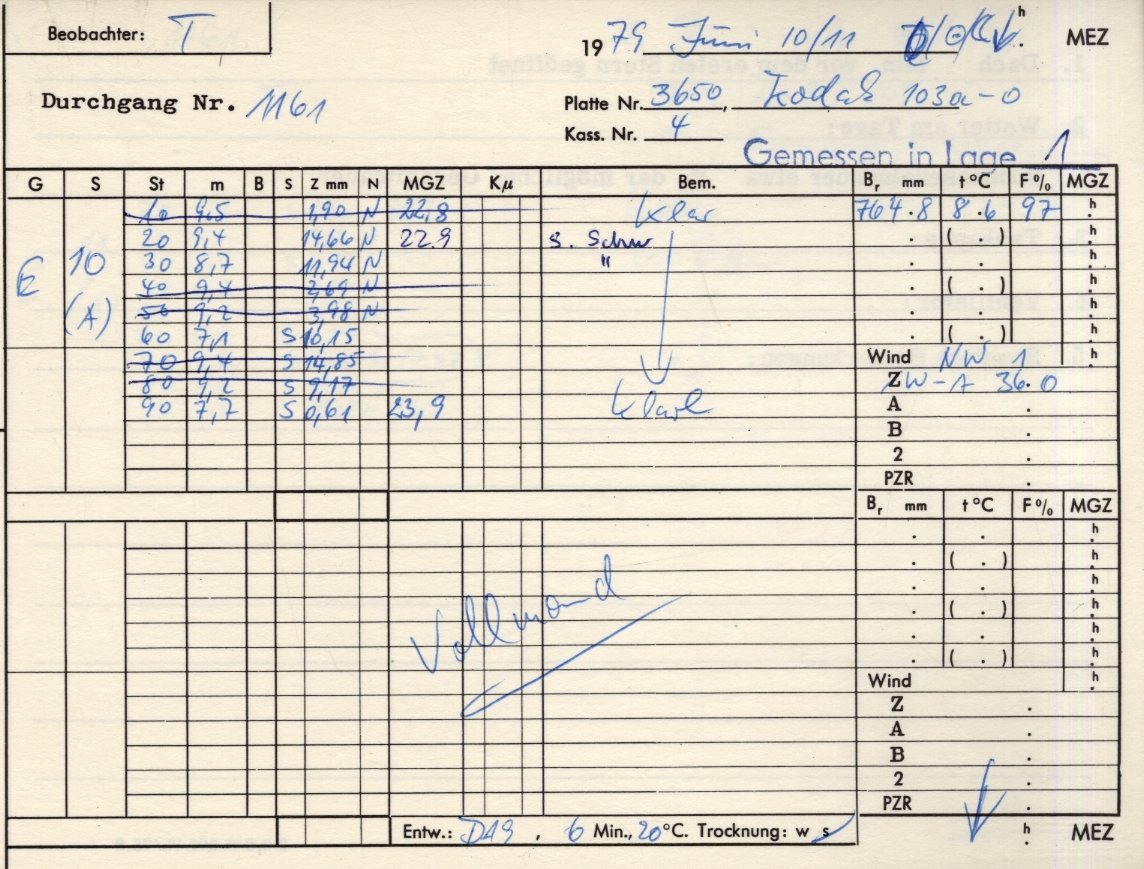 Beobachter: T
1979 Juni 10/11 h MEZ
Durchgang Nr. 1161
Platte Nr. 3650, Kodak 103a-O
Kass. Nr. 4
Gemessen in Lage 1
G S St m B S Z mm N MGZ Kμ Bem. Br mm t °C F % MGZ
10 9,5 1,90 N 22,8 klar 764.8 8.6 97 h
20 9,4 14,66 N 22.9 s. Schw . ( . ) h
E 10 30 8,7 11,94 N " . . h
40 9,4 2,69 N . ( . ) h
(A) 50 9,2 3,98 N . . h
60 7,1 S 10,15 . ( . ) h
70 9,4 S 14,85 Wind NW 1 h
80 9,2 S 9,17 Z ZW-A 36.0
90 7,7 S 0,61 23,9 klar A .
B .
2 .
PZR .
Br mm t °C F % MGZ
. . h
. ( . ) h
. . h
Vollmond . ( . ) h
. . h
. ( . ) h
Wind h
Z .
A .
B .
2 .
PZR .
Entw.: D19, 6 Min., 20 °C. Trocknung: w s h MEZ